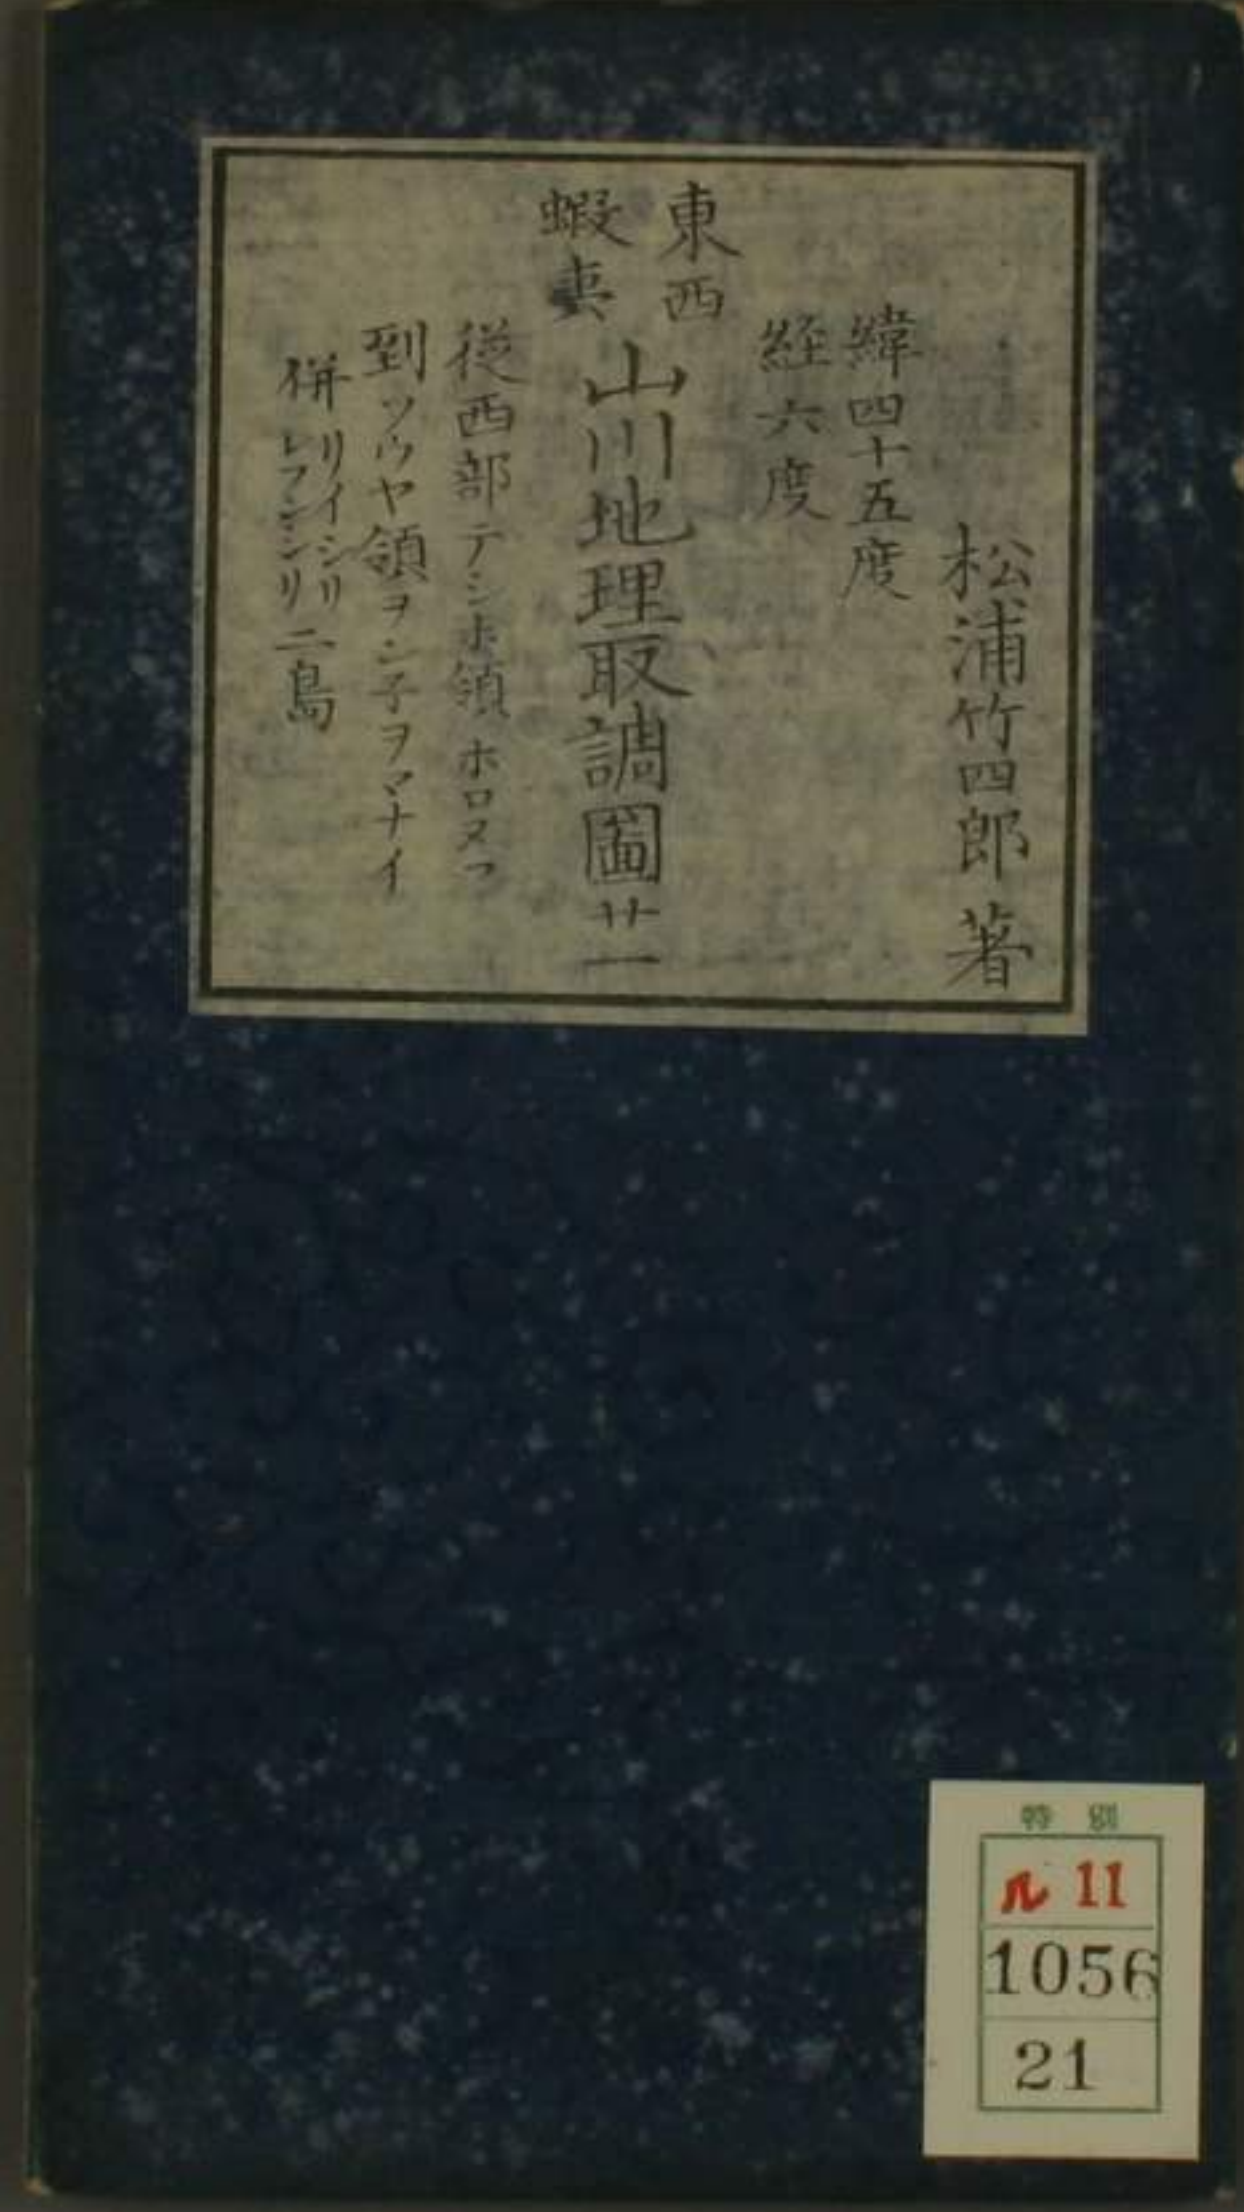 松浦竹四郎著
緯四十五度
経六度
東西
蝦夷
山川地理取調圖廿一
従西部テシホ領ホロヌフ
到ソウヤ領ヲシ子ヲマナイ
併リイシリ
レフンシリ
二島
特別
ル11
1056
21